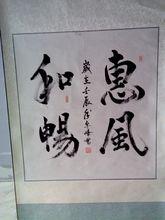 惠風
和暢
歲在壬辰